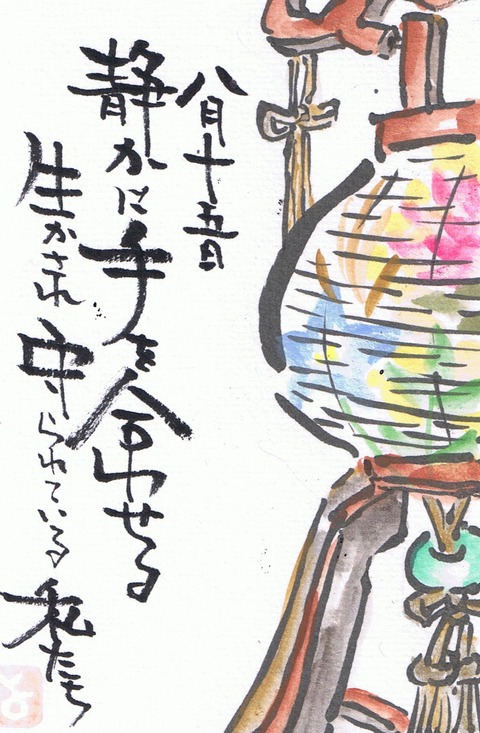 八月十五日
静かに手を合せる
生かされ守られている私たち